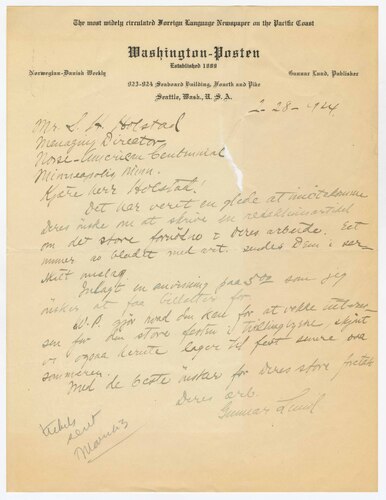 The most widely circulated Foreign Language Newspaper on the Pacific Coast
Washington-Posten
Established 1889
Norwegian-Danish Weekly
Gunnar Lund, Publisher
923-924 Seaboard Building, Fourth and Pike
Seattle, Wash., U. S. A.
2-28-1924
Mr. S. H. Holstad
Managing Director
Norse-American Centennial
Minneapolis Minn.
Kjære herr Holstad!
Det har været en glede at imøtekomme
Deres ønske om at skrive en redaktionsartikel
om det store foretagende Deres arbeide. Eet
nummer av bladet med art. sendes Dem i sær-
skilt omslag.
Inlagt en anvisning paa 5.00 som jeg
ønsker at faa billetter for
W.P. gjør hvad den kan for at vække interes-
sen for den store festen i tvillingbyerne, skjønt
vi ogsaa herute lager til fest senere paa
sommeren.
Med de beste ønsker for Deres store
Deres arb.
Gunnar Lund
Tickets
sent